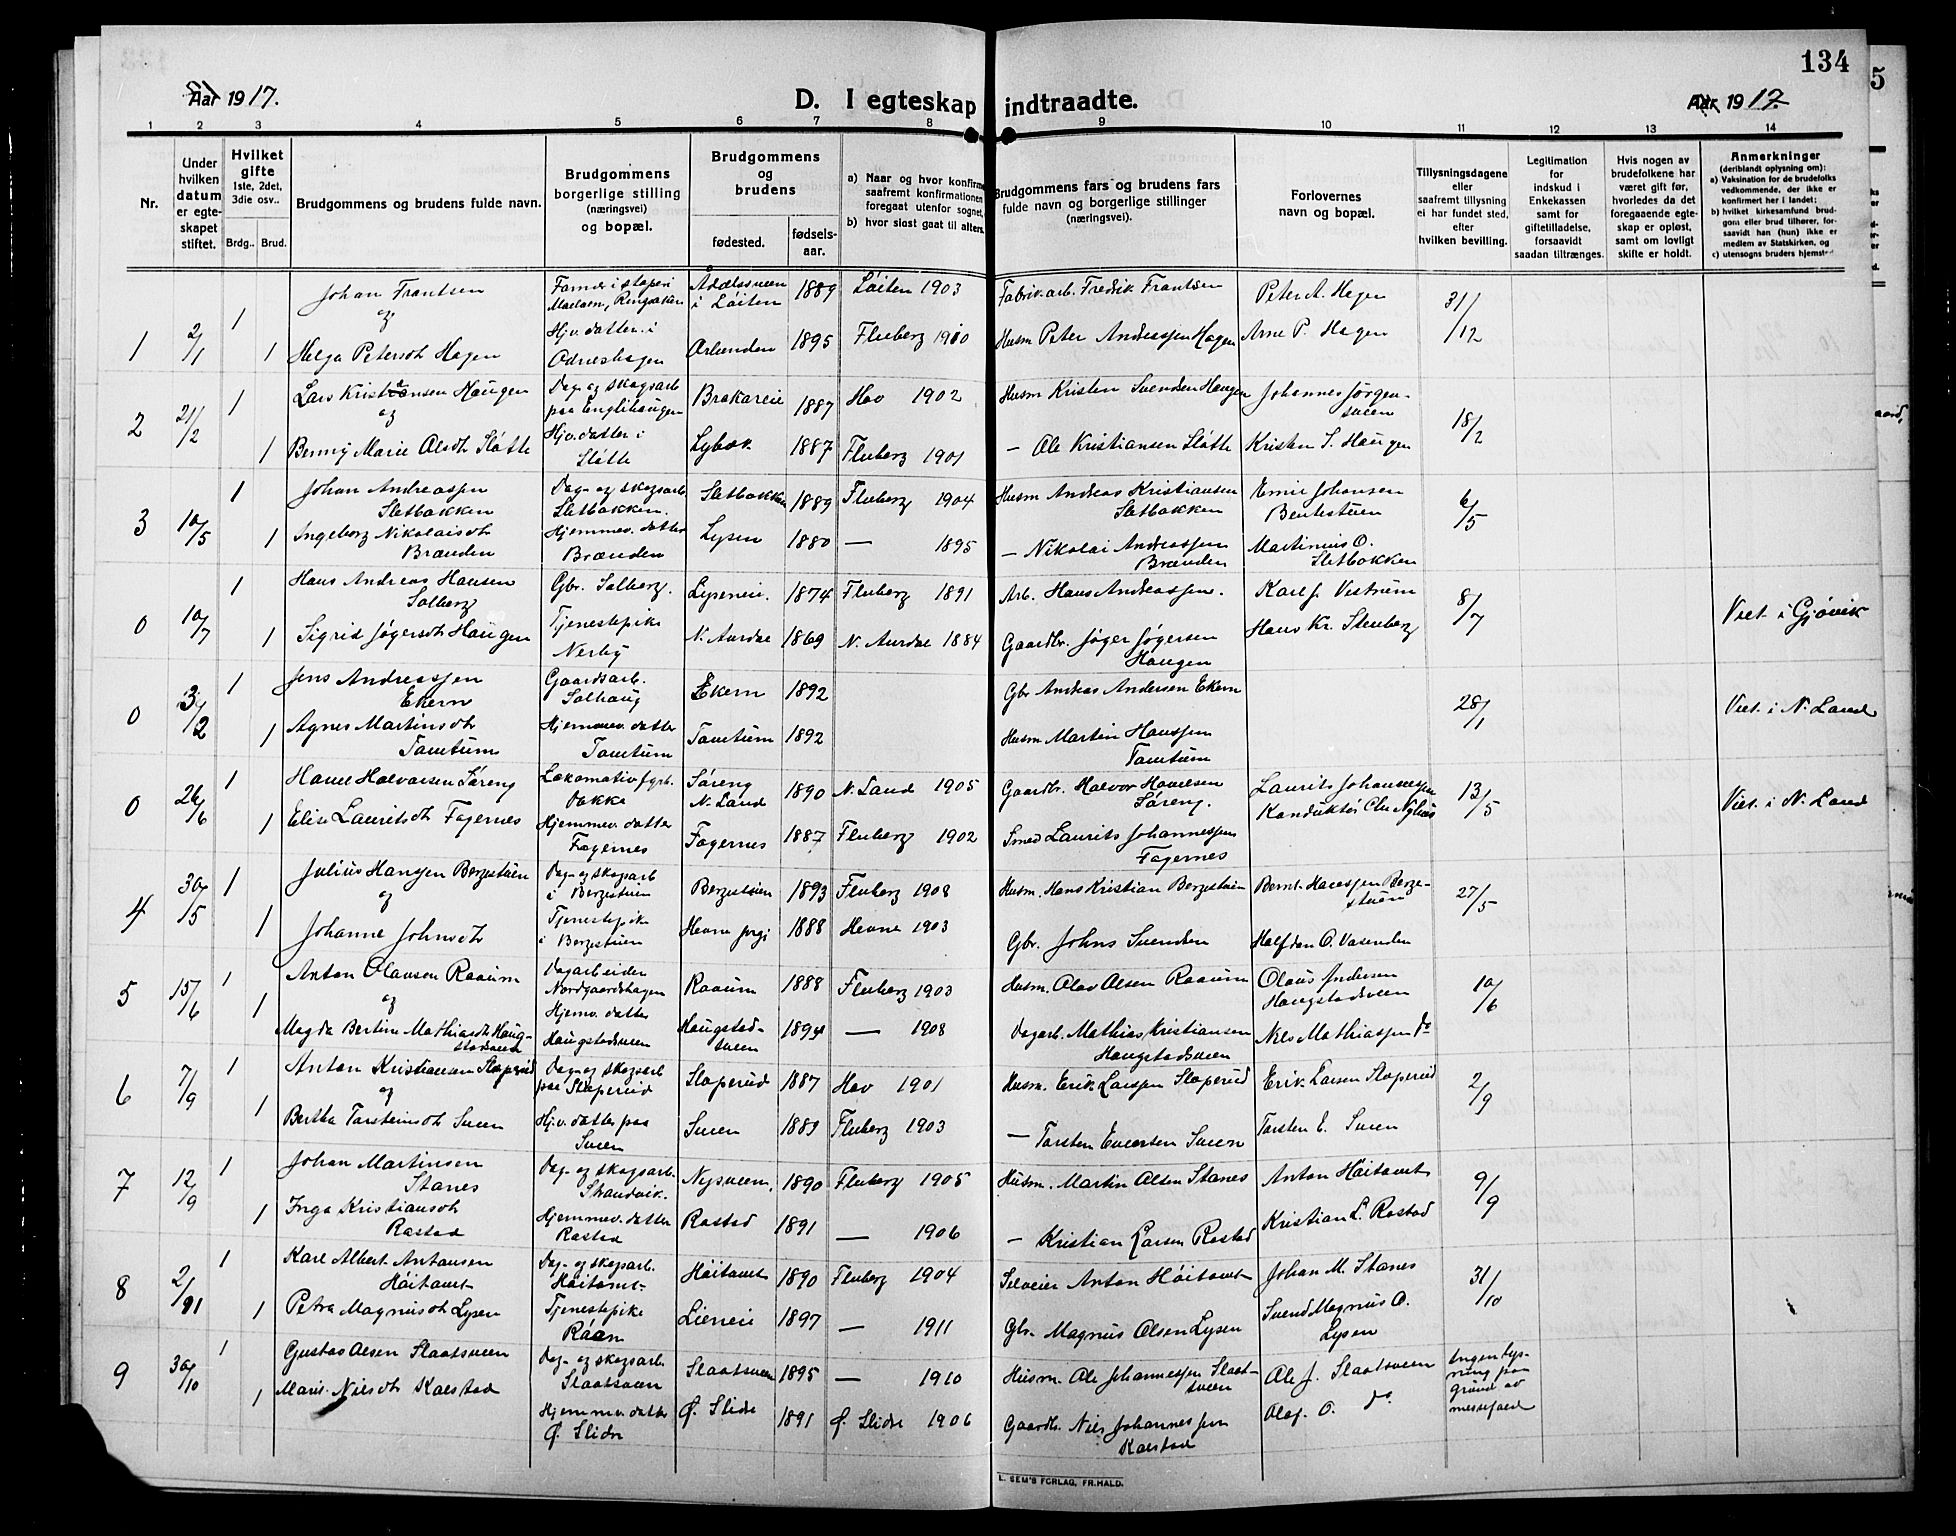 134
Aar 1917.
D. I egteskap indtraadte.
Aar 1917.
1 2 3 4 5 6 7 8 9 10 11 12 13 14
Nr.
Under hvilken datum er egteskapet stiftet.
Hvilket gifte 1ste, 2det, 3die osv..
Brdg.. Brud.
Brudgommens og brudens fulde navn.
Brudgommens borgerlige stilling (næringsvei) og bopæl.
Brudgommens og brudens
fødested.
fødsels-aar.
a) Naar og hvor konfirm saafremt konfirmationen foregaat utenfor sognet,
b) hvor sidst gaat til alters.
Brudgommens fars og brudens fars fulde navn og borgerlige stillinger (næringsvei).
Forlovernes navn og bopæl.
Tillysningsdagene eller saafremt tillysning ei har fundet sted, efter hvilken bevilling.
Legitimation for indskud i Enkekassen samt for giftetilladelse, forsaavidt saadan tiltrænges.
Hvis nogen av brudefolkene har været gift før, hvorledes da det foregaaende egteskap er opløst, samt om lovligt skifte er holdt.
Anmerkninger (deriblandt oplysning om):
a) Vaksination for de brudefolks vedkommende, der ikke er konfirmert her i landet;
b) hvilket kirkesamfund brudgom eller brud tilhører, forsaavidt han (hun) ikke er medlem av Statskirken, og
c) utensogns bruders hjemsted
1 2/1 1 Johan Frantsen Løiten 1889 Løiten 1903 Fabrikarb. Fredrik Frantsen Peter A. Hagen 31/12
og
1 Helga Petersdt Hagen Hjv. datter i Odneshagen 1895 Fluberg 1910 Husm Peter Andreassen Hagen Arne P. Hagen
2 21/2 1 Lars Kristiansen Haugen Dag- og skogsarb paa Englihaugen Brakareie 1887 Hov 1902 Husm Kristen Svendsen Haugen Johannes Jørgensveen 18/2
og
1 Benny Marie Olsdt Sløtte Hjv. datter i Sløtte Lybæk 1887 Fluberg 1901 — Ole Kristiansen Sløtte Kristen S. Haugen
3 10/5 1 Johan Andreassen Sletbakken Dag- og skogsarb Sletbakken. Sletbakken 1889 Fluberg 1904 Husm Andreas Kristiansen Sletbakken Emil Johansen 6/5
1 Ingeborg Nikolaisdt Brænden Hjemmev. datter Brænden Lysen 1880 — 1895 — Nikolai Andreassen Brænden Martinius O. Sletbakken
0 10/7 1 Hans Andreas Hansen Solberg Gbr. Solberg. Lyseneie. 1874 Fluberg 1891 Arb. Hans Andreassen. Karl J. Vestrum 8/7 Viet i Gjøvik
1 Sigrid Jøgersdt Haugen Tjenestepike Nerby N. Aurdal 1869 N. Aurdal 1884 Gaardbr. Jøger Jøgersen Haugen Hans Kr. Stenberg
0 3/2 1 Jens Andreassen Ekern Gaardsarb. Solhaug Ekern 1892 Gbr Andreas Andersen Ekern 28/1 Viet i N. Land
1 Agnes Martinsdt Tomtum Hjemmev. datter Tomtum Tomtum 1892 Husm Martin Hanssen Tomtum
0 26/6 1 Halvorsen Søreng Lokomotivfyrb. Dokka Søreng N. Land 1890 N. Land 1905 Gaardbr. Halvor Søreng. Laurits Johannessen 13/5 Viet i N. Land
1 Elise Lauritsdt Fagernes Hjemmev. datter Fagernes Fagernes 1887 Fluberg 1902 Smed Laurits Johannessen Fagernes Konduktør
4 30/5 1 Julius Hansen Bergestuen Dag- og skogsarb i Bergestuen Bergestuen 1893 Fluberg 1908 Husm. Hans Kristian Bergestuen Bernt Hanssen Bergestuen 27/5
og
1 Johanne Johnsdt Tjenestepike i Bergestuen Hevne prgj 1888 Hevne 1903 Gbr. Johns Svendsen Halfdan O. Vasenden
5 15/6 1 Anton Olausen Raaum Dagarbeider Nordgaardshagen Raaum 1888 Fluberg 1903 Husm. Olav Olsen Raaum Olaus Andersen Haugstadsveen 10/6
og
1 Magda Bertine Mathiasdt Haugstadsveen Hjemv. datter Haugstadsveen Haugstadsveen 1894 — 1908 Dagarb. Mathias Kristiansen Haugstadsveen Nils Mathiassen do
6 7/9 1 Anton Kristiansen Sloperud Dag- og skogsarb paa Sloperud Sloperud 1887 Hov 1901 Husm. Erik Larsen Sloperud Erik Larsen Sloperud 2/9
og
1 Bertha Torsteinsdt Sveen Hjv. datter paa Sveen Sveen 1889 Fluberg 1903 — Torsten Evensen Sveen Torsten E. Sveen
7 12/9 1 Johan Martinsen Stanes Dag- og skogsarb. Strandvik. Nysveen. 1890 Fluberg 1905 Husm. Martin Olsen Stanes Anton Høitomt 9/9
1 Inga Kristiansdt Rostad Hjemmev. datter Rostad Rostad 1891 — 1906 — Kristian Larsen Rostad Kristian L. Rostad
8 2/11 1 Karl Albert Antonsen Høitomt Dag- og skogsarb. Høitomt Høitomt 1890 Fluberg 1904 Selveier Anton Høitomt Johan M. Stanes 31/10
1 Petra Magnusdt Lysen Tjenestepike Lieneie 1897 — 1911 Gbr. Magnus Olsen Lysen Svend Magnus O. Lysen
9 30/10 1 Gustav Olsen Slaatsveen Dag- og skogsarb. Slaatsveen Slaatsveen 1895 — 1910 Husm. Ole Johannessen Slaatsveen Ole J. Slaatsveen Ingen lysning paa grund av messefald
1 Marit Nilsdt Kalstad Hjemmev. datter Ø. Slidre Ø. Slidre 1891 Ø. Slidre 1906 Gaardb. Nils Johannessen Kalstad Olaf O. do
L. SEM'S FORLAG, FR.HALD.